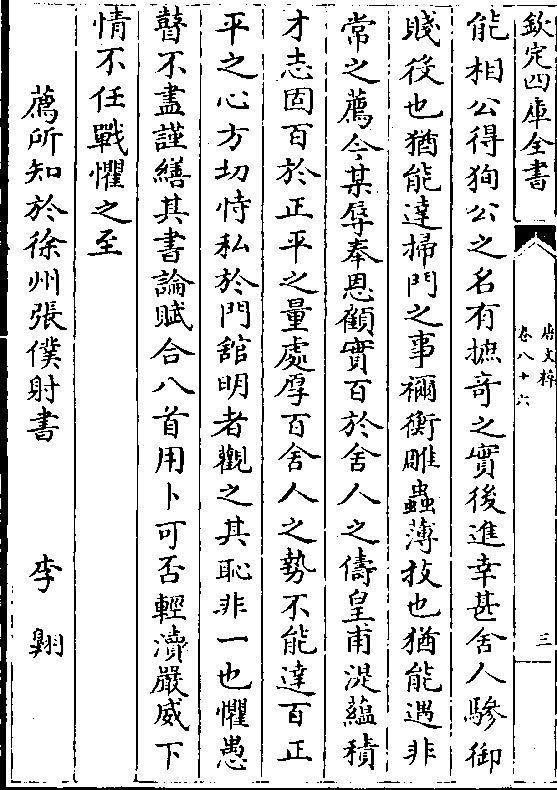 欽定四庫全書
唐文粹
卷八十六
三
能相公得狥公之名有摭竒之實後進幸甚舍人驂御
賤役也猶能達掃門之事禰衡雕蟲薄技也猶能遇非
常之薦今某辱奉恩顧實百於舍人之儔皇甫湜藴積
才志固百於正平之量處厚百舍人之勢不能達百正
平之心方切恃私於門舘明者觀之其恥非一也懼愚
瞽不盡謹繕其書論賦合八首用卜可否輕瀆嚴威下
情不任戰懼之至
薦所知於徐州張僕射書 李翺